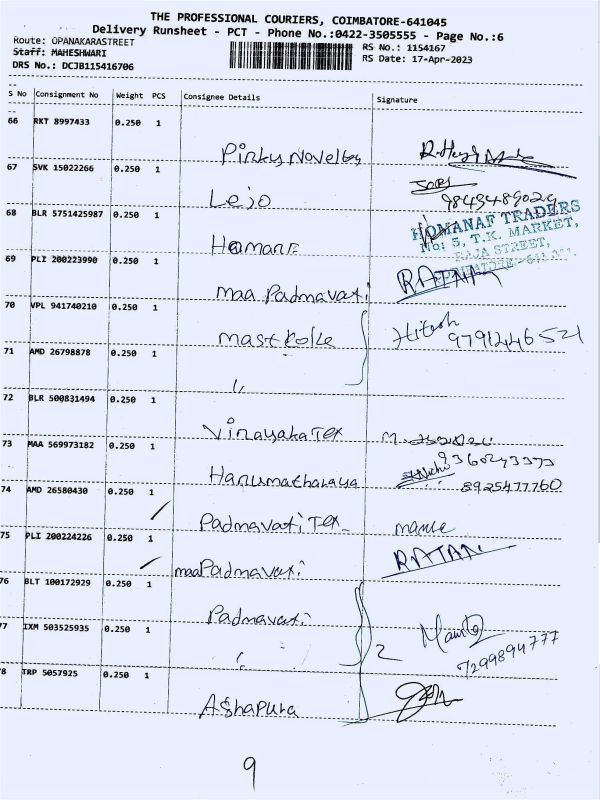 THE PROFESSIONAL COURIERS, COIMBATORE-641045
Delivery Runsheet - PCT - Phone No.:0422-3505555 - Page No.:6
Route: OPANAKARASTREET
RS No.: 1154167
Staff: MAHESHWARI
RS Date: 17-Apr-2023
DRS No.: DCJB115416706
S No Consignment No Weight PCS Consignee Details Signature
66 RKT 8997433 0.250 1
Pinky Novelty
67 SVK 15022266 0.250 1
Lejo 9843489029
68 BLR 5751425987 0.250 1
HOMANAF TRADERS
No: 5, T.K. MARKET,
RAJA STREET,
69 PLI 200223990 0.250 1
maa Padmavati RATAN
70 VPL 941740210 0.250 1
Hitesh
9791246521
71 AMD 26798878 0.250 1
"
72 BLR 500831494 0.250 1
Vinayaka Tex
73 MAA 569973182 0.250 1
8925477760
74 AMD 26580430 0.250 1
Padmavati Tex
75 PLI 200224226 0.250 1
maa Padmavati RATAN
76 BLT 100172929 0.250 1
Padmavati
77 IXM 503525935 0.250 1
" 2
7299894777
78 TRP 5057925 0.250 1
Ashapura
9